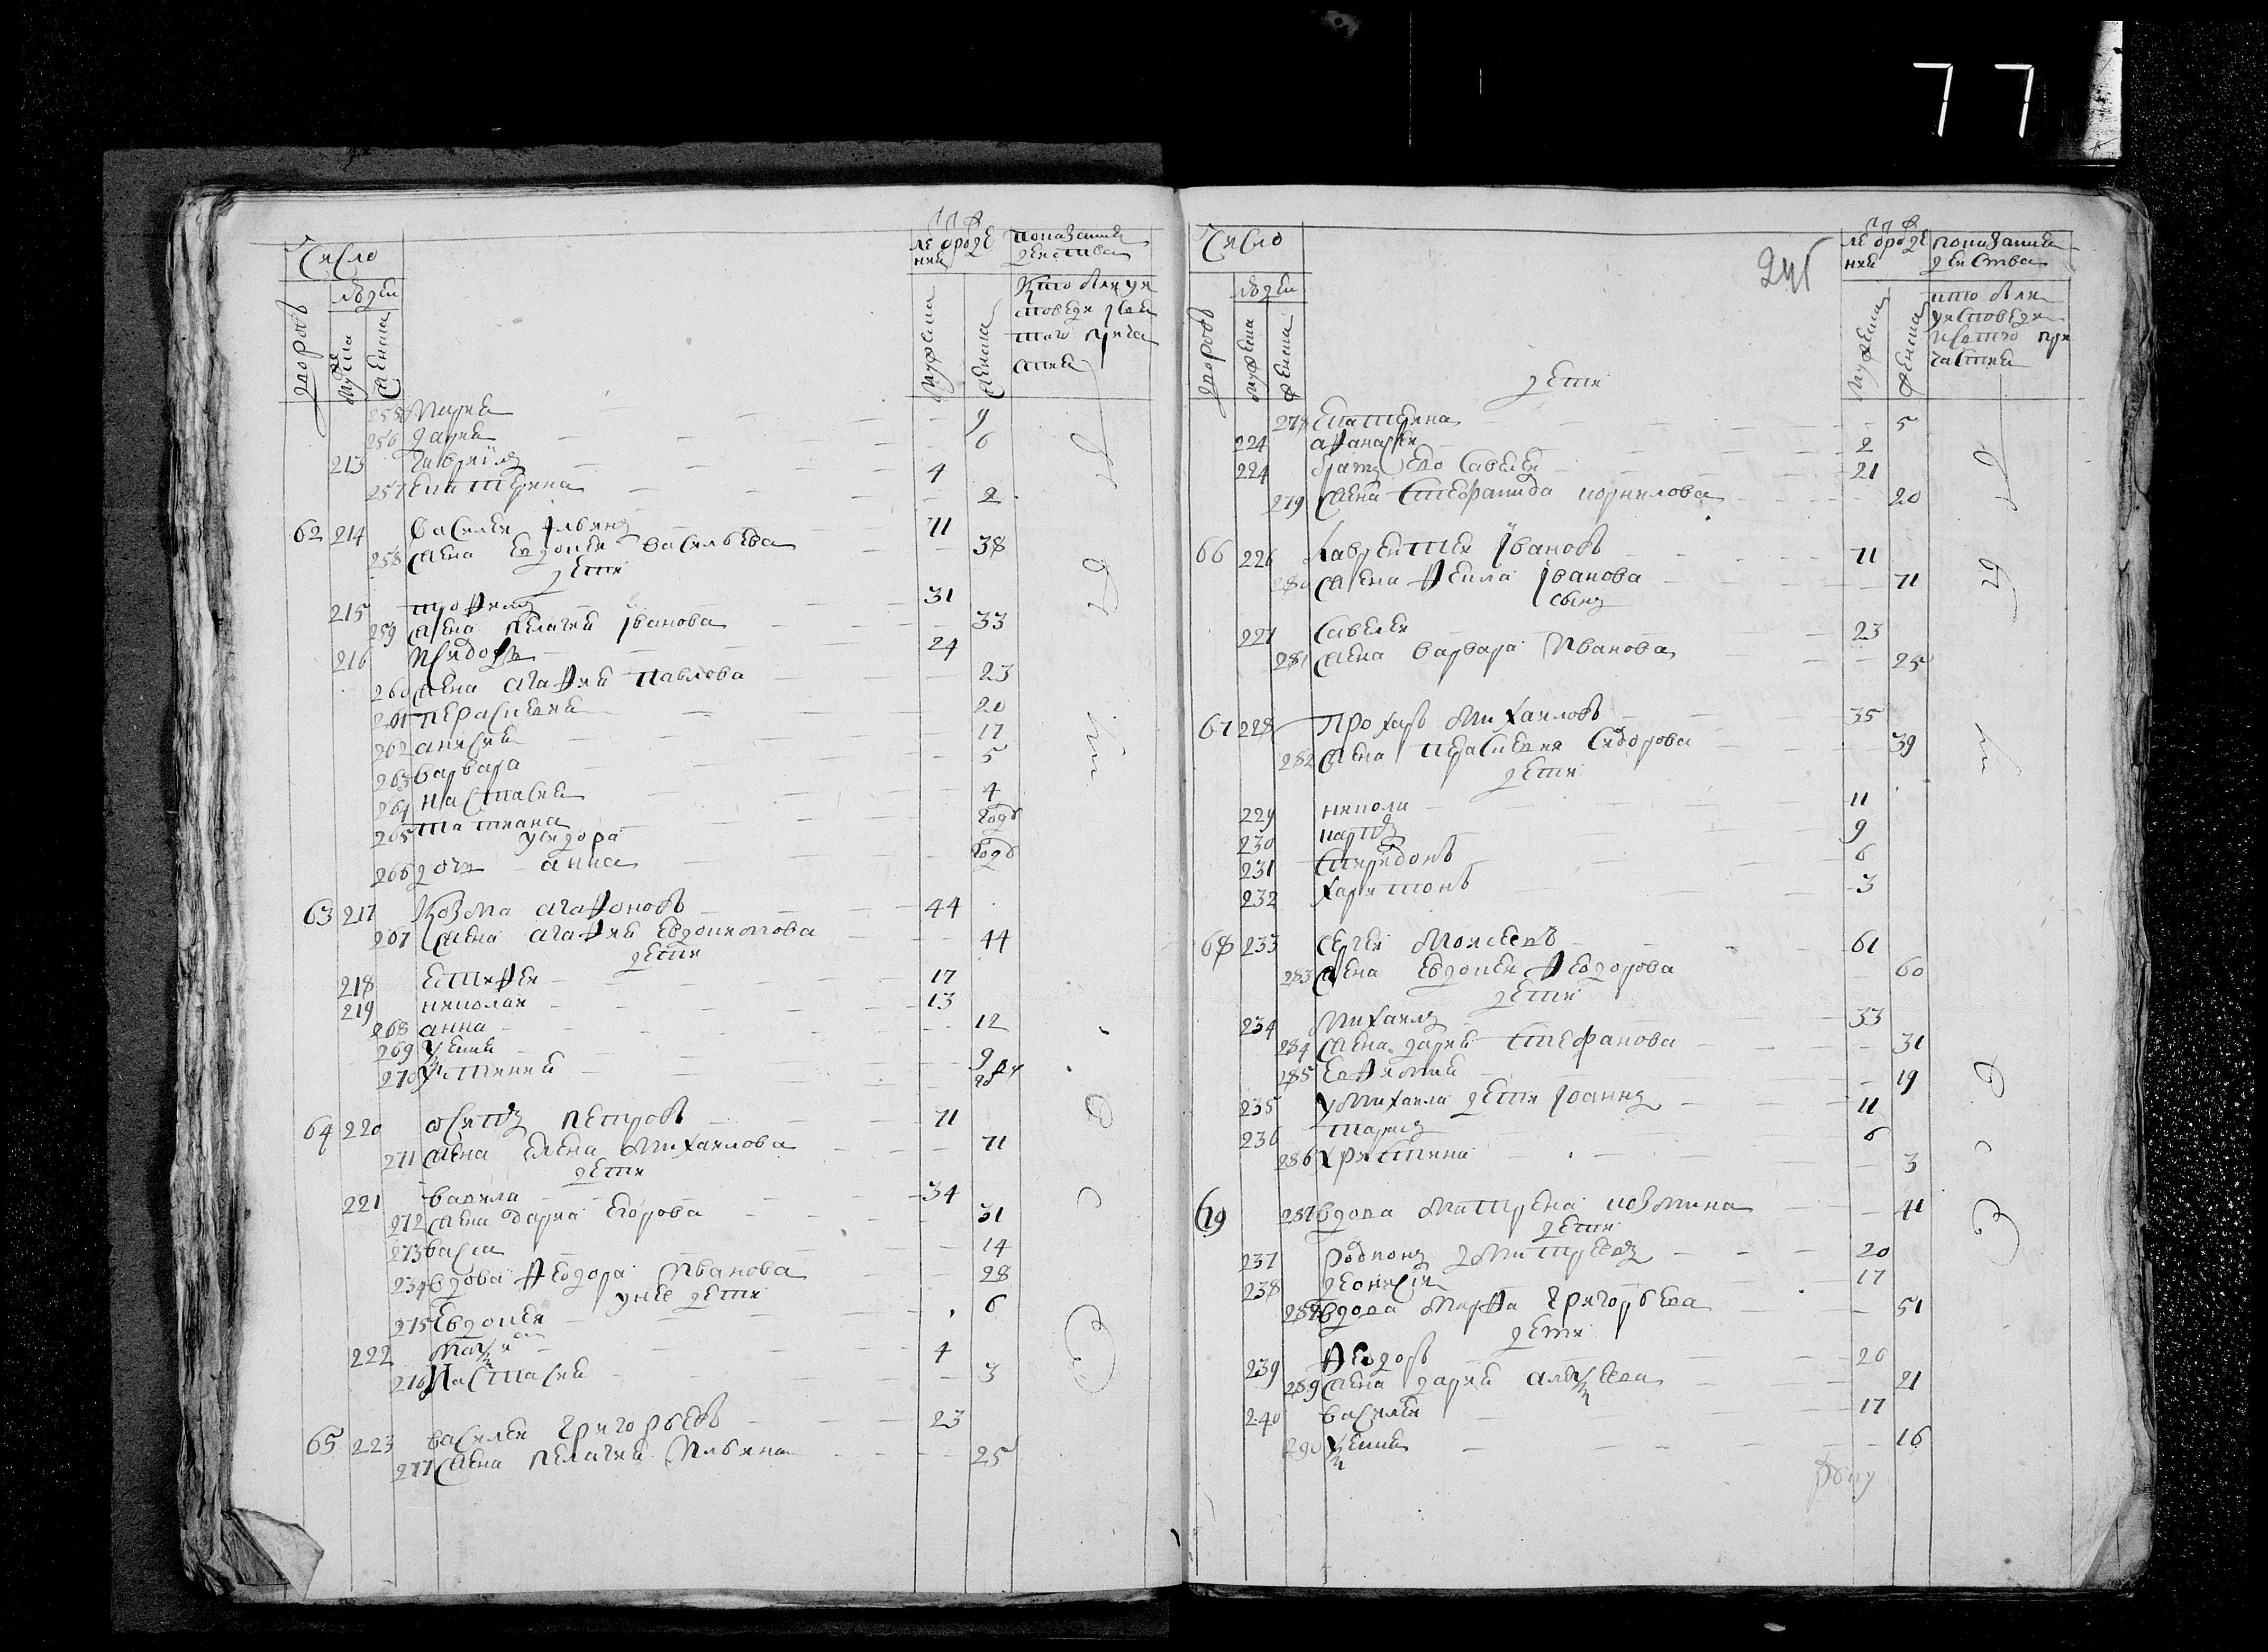 77
Число
дворовъ
людей
мужеска
женска
лѣ ороже
ния
мужеска
женска
показания
действа
Кто были у и
споведи и свя
таго прича
стия
255 Мария 9
256 дария 6
213 Гавриїлъ 4
257 Екатерина 2
62 214 Василей Ильинъ 71
258 жена Евдокия Васильева 38
дети
215 трофимъ 31
259 жена Пелагия Іванова 33
216 Исидоръ 24
260 жена агафия павлова 23
261 перасковия 20
262 анисия 17
263 варвара 5
264 настасия 4
265 татиана году
у исидора
266 дочь анна году
63 217 Козма агафоновъ 44
267 жена агафия Евдокимова 44
дети
218 Естифей 17
219 николай 13
268 анна 12
269 Ѯения 9
270 Устиния
64 220 осипъ петровъ 71
271 жена Елена Михаилова 71
дети
221 вавила 34
272 жена дария Егорова 31
273 васса 14
234 вдова Феодора Иванова 28
у нее дети
275 Евдокия 6
222 4
276 Настасия 3
65 223 василей Григорьевъ 23
277 жена Пелагия Ильина 25
Число
дворовъ
людей
мужеска
женска
лѣ ороже
ния
мужеска
женска
показания
действа
кто были
у исповеди
и свято при
частия
дети
278 Екатерина 5
224 афанасей 2
224 братъ Его Савелей 21
279 жена Стефанида корнилова 20
66 226 Лаврентей Івановъ 71
280 жена Фекла Іванова 71
сынъ
227 Савелей 23
281 жена варвара Иванова 25
67 228 Прохаръ Михаиловъ 35
282 жена перасковия Сидорова 39
дети
229 никола 11
230 карпъ 9
231 Спиридонъ 6
232 Харитонъ 3
68 233 Сергей Моисеевъ 61
283 жена Евдокия Феодорова 60
дети
234 Михаилъ 33
284 жена дария Стефанова 31
285 Ефимия 19
235 у Михаила дети Іоаннъ 11
236 тарасъ 6
286 Христина 3
69 287 вдова Матрена козмина 41
дети
237 родионъ дмитреевъ 20
238 деонисій 17
288 вдова Марфа Григорьева 51
дети
239 Феодоръ 20
289 жена дария алеѯеева 21
240 василей 17
290 Ѯения 16